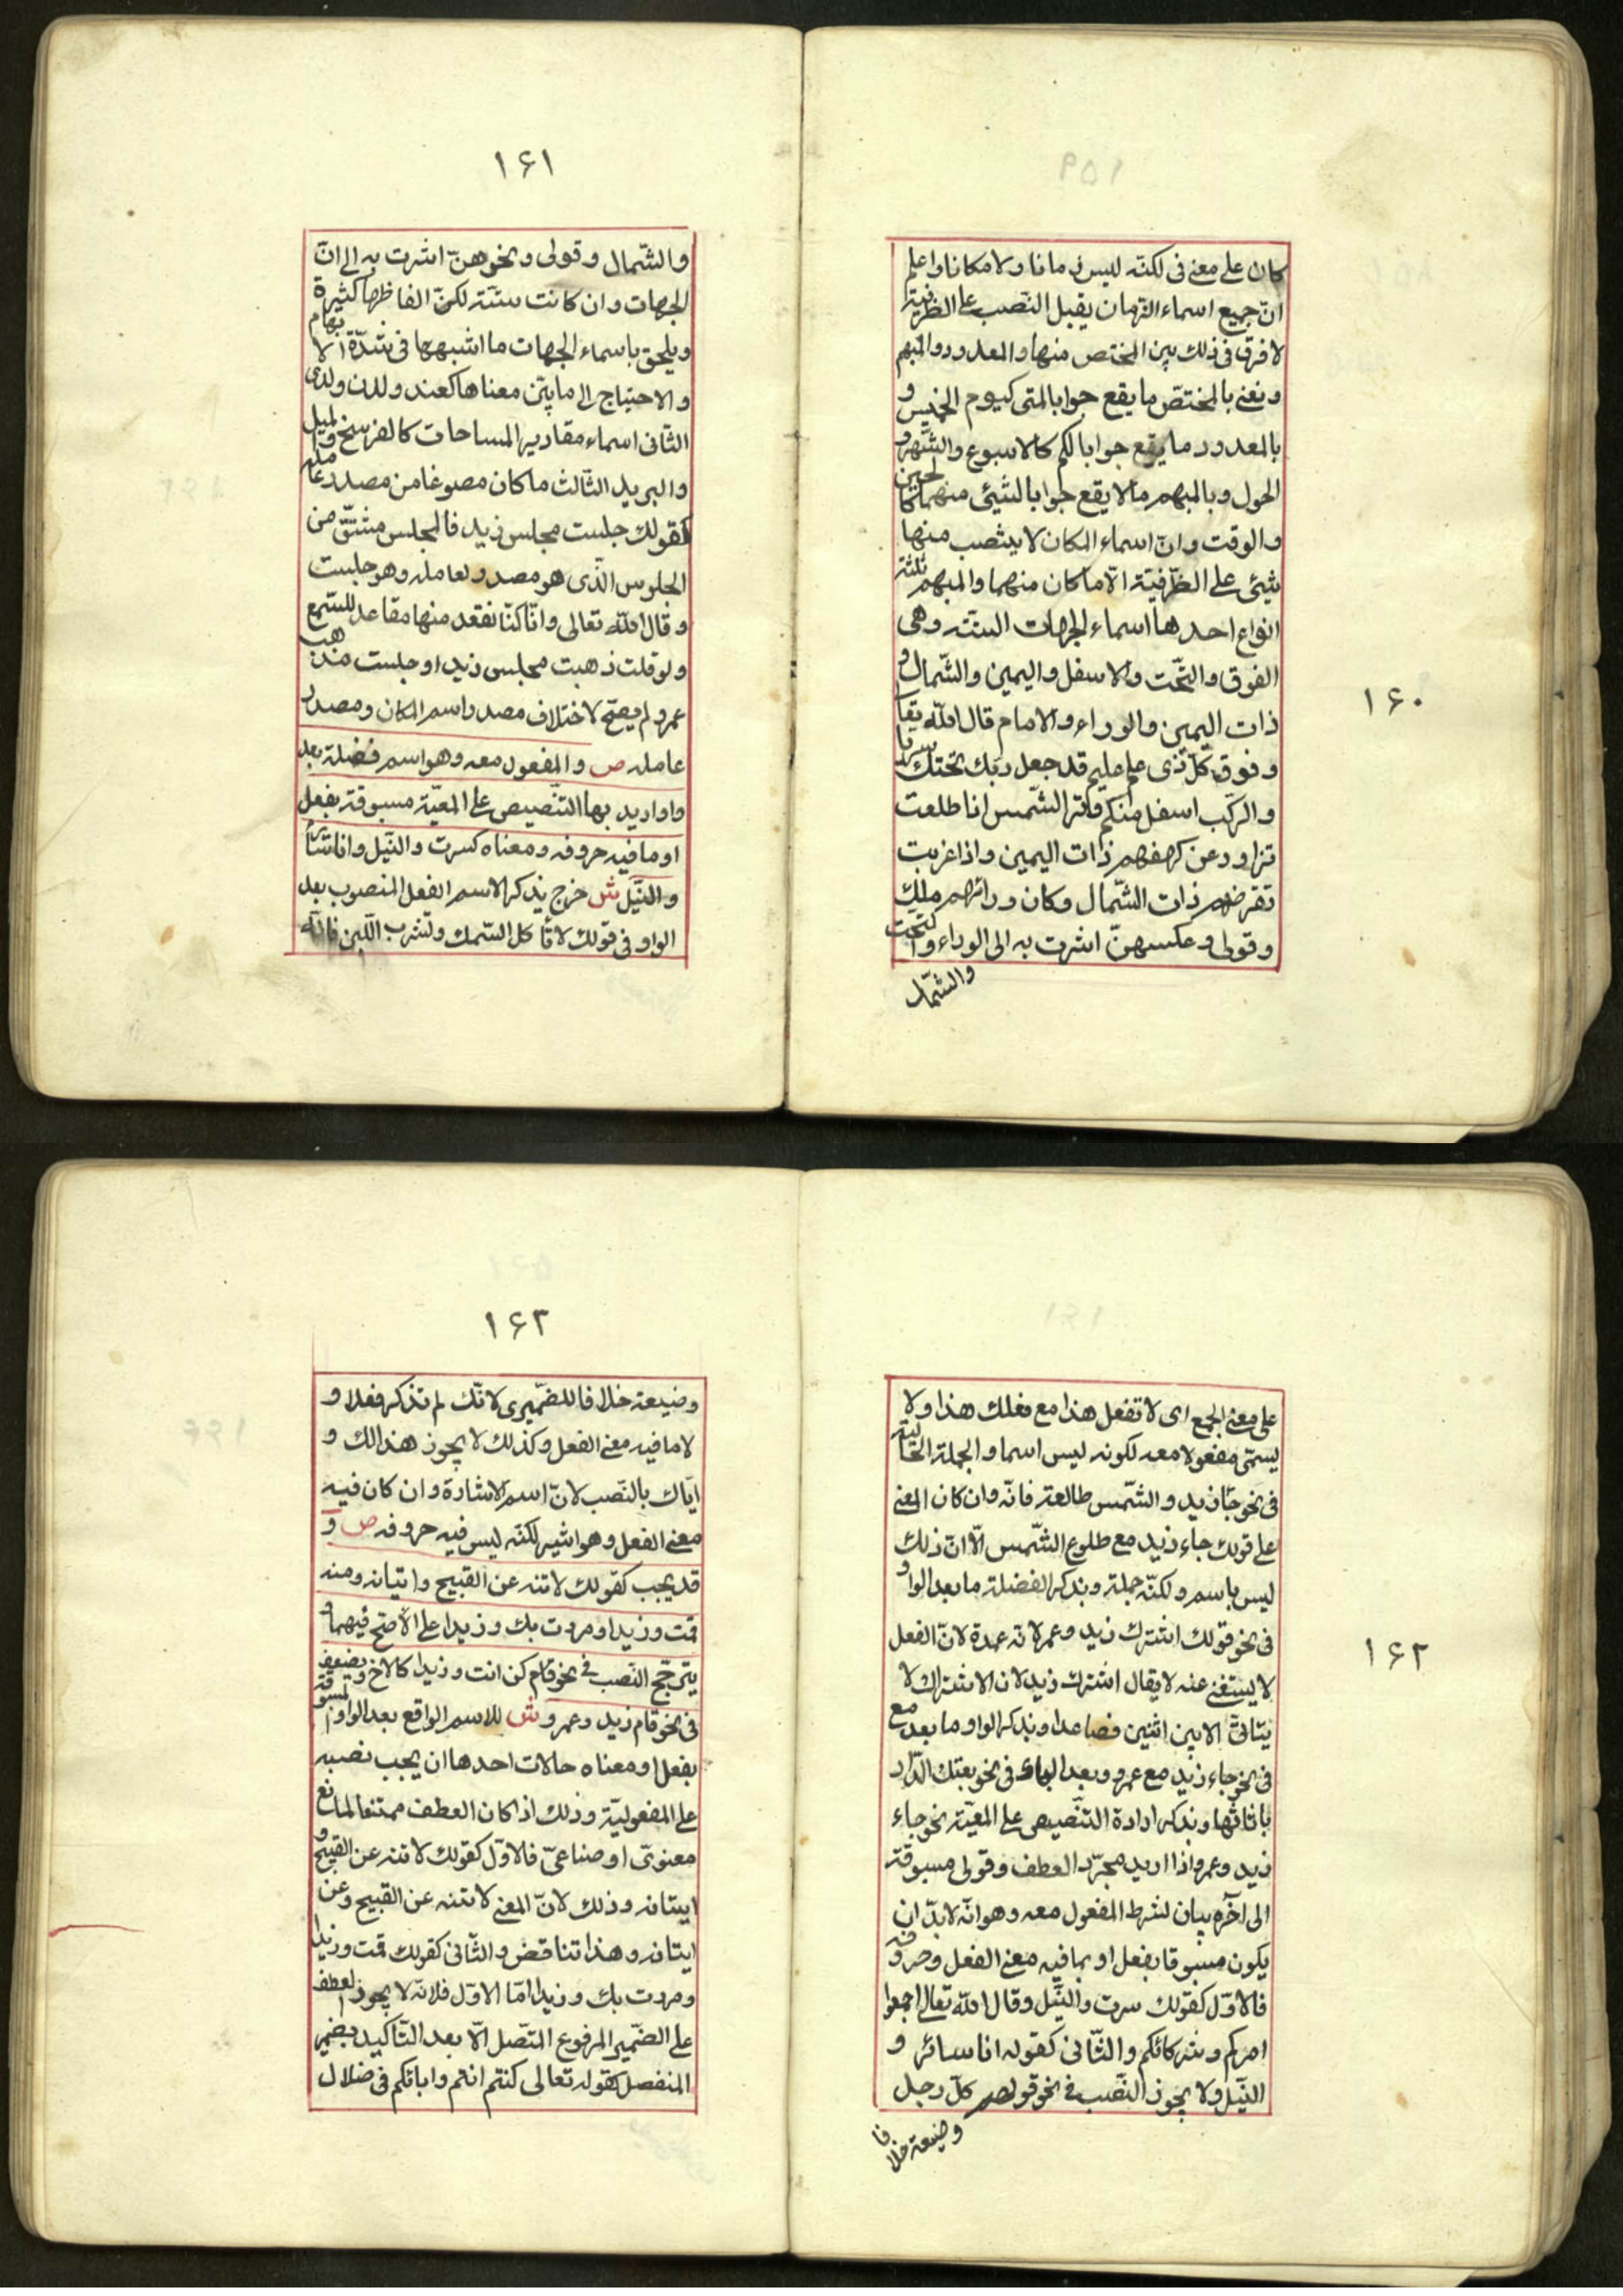 ۱۶۰
كان على معنى فى لكنّه ليس زمانا ولا مكانا واعلم
انّ جميع اسماء الزّمان يقبل النّصب على الظّرفيّة
لا فرق فى ذلك بين المختص منها والمعدود والمبهم
ونعنى بالمختصّ ما يقع جوابا لمتى كيوم الخميس و
بالمعدود ما يقع جوابا لكم كالاسبوع والشّهر و
الحول وبالمبهم ما لا يقع جوابا لشيئ منهما كالحين
والوقت وانّ اسماء المكان لا ينصب منها
شيئ على الظّرفيّة الّا ما كان منهما والمبهم ثلثة
انواع احدها اسماء الجهات الستّة وهى
الفوق والتّحت والاسفل واليمين والشّمال و
ذات اليمين والوراء والامام قال الله تعا
وفوق كلّ ذى علم عليم قد جعل ربّك تحتك سريا
والرّكب اسفل منكم وترا الشّمس اذا طلعت
تزاور عن كهفهم ذات اليمين واذا غربت
تقرضهم ذات الشّمال وكان ورائهم ملك
وقولى وعكسهنّ اشرت به الى الوراء والتّحت
والشّمال
۱۶۱
والشّمال وقولى ونحوهنّ اشرت به الى انّ
الجهات وان كانت ستّة لكنّ الفاظها كثيرة
ويلحق باسماء الجهات ما اشبهها فى شدّة الابهام
والاحتياج الى ما يبيّن معناها كعند ولدن ولدى
الثّانى اسماء مقادير المساحات كالفرسخ والميل
والبريد الثّالث ما كان مصوغا من مصدر عامله
كقولك جلست مجلس زيد فالمجلس مشتقّ من
الجلوس الّذى هو مصدر لعامله وهو جلست
وقال الله تعالى وانّا كنّا نقعد منها مقاعد للسّمع
ولو قلت ذهبت مجلس زيد او جلست مذهب
عمرو لم يصحّ لاختلاف مصدر اسم المكان ومصدر
عامله ص والمفعول معه وهو اسم فضلة بعد
واو اريد بها التّنصيص على المعيّة مسبوقة بفعل
او ما فيه حروفه ومعناه كسرت والنّيل وانا سائر
والنّيل ش خرج بذكر الاسم الفعل المنصوب بعد
الواو فى قولك لا تأكل السّمك وتشرب اللّبن فانّه
۱۶۲
على معنى الجمع اى لا تفعل هذا مع فعلك هذا ولا
يسمّى مفعولا معه لكونه ليس اسما والجملة الحالية
فى نحو جاء زيد والشّمس طالعة فانّه وان كان المعنى
على قولك جاء زيد مع طلوع الشّمس الّا انّ ذلك
ليس باسم ولكنّه جملة وبذكر الفضلة ما بعد الواو
فى نحو قولك اشترك زيد وعمر لانّه عمدة لانّ الفعل
لا يستغنى عنه لا يقال اشترك زيد لان الاشتراك لا
يتاتّى الا بين اثنين فصاعدا وبذكر الواو ما بعد مع
فى نحو جاء زيد مع عمرو وبعد الباء فى نحو بعتك الدّار
باثاثها وبذكر ارادة التّنصيص على المعيّة نحو جاء
زيد وعمرو اذا اريد مجرّد العطف وقولى مسبوقة
الى آخره بيان لشرط المفعول معه وهو انّه لا بدّ ان
يكون مسبوقا بفعل او بما فيه معنى الفعل وحروفه
فالاوّل كقولك سرت والنّيل وقال الله تعالى اجمعوا
امركم وشركائكم والثّانى كقوله انا سائر و
النّيل ولا يجوز النّصب فى نحو قولهم كلّ رجل
وضيعة خلافا
۱۶۳
وضيعة خلافا للضّميرى لانّك لم تذكر فعلا و
لا ما فيه معنى الفعل وكذلك لا يجوز هذا لك و
ايّاك بالنّصب لانّ اسم الاشارة وان كان فيه
معنى الفعل وهو اشير لكنّه ليس فيه حروفه ص و
قد يجب كقولك لا تنه عن القبيح واتيانه ومنه
قمت وزيدا ومررت بك وزيدا على الاصحّ فيهما و
يترجّح النّصب فى نحو قام كن انت وزيدا كالاخ ويضعف
فى نحو قام زيد وعمرو ش للاسم الواقع بعد الواو المسبوقة
بفعل او معناه حالات احدها ان يجب نصبه
على المفعوليّة وذلك اذا كان العطف ممتنعا لمانع
معنوىّ او صناعىّ فالاوّل كقولك لا تنه عن القبيح و
ايتانه وذلك لانّ المعنى لا تنه عن القبيح وعن
ايتانه وهذا تناقض والثّانى كقولك قمت وزيدا
ومررت بك وزيدا امّا الاوّل فلانّه لا يجوز العطف
على الضّمير المرفوع المتّصل الّا بعد التّاكيد بضمير
المنفصل كقوله تعالى كنتم انتم وابائكم فى ضلال